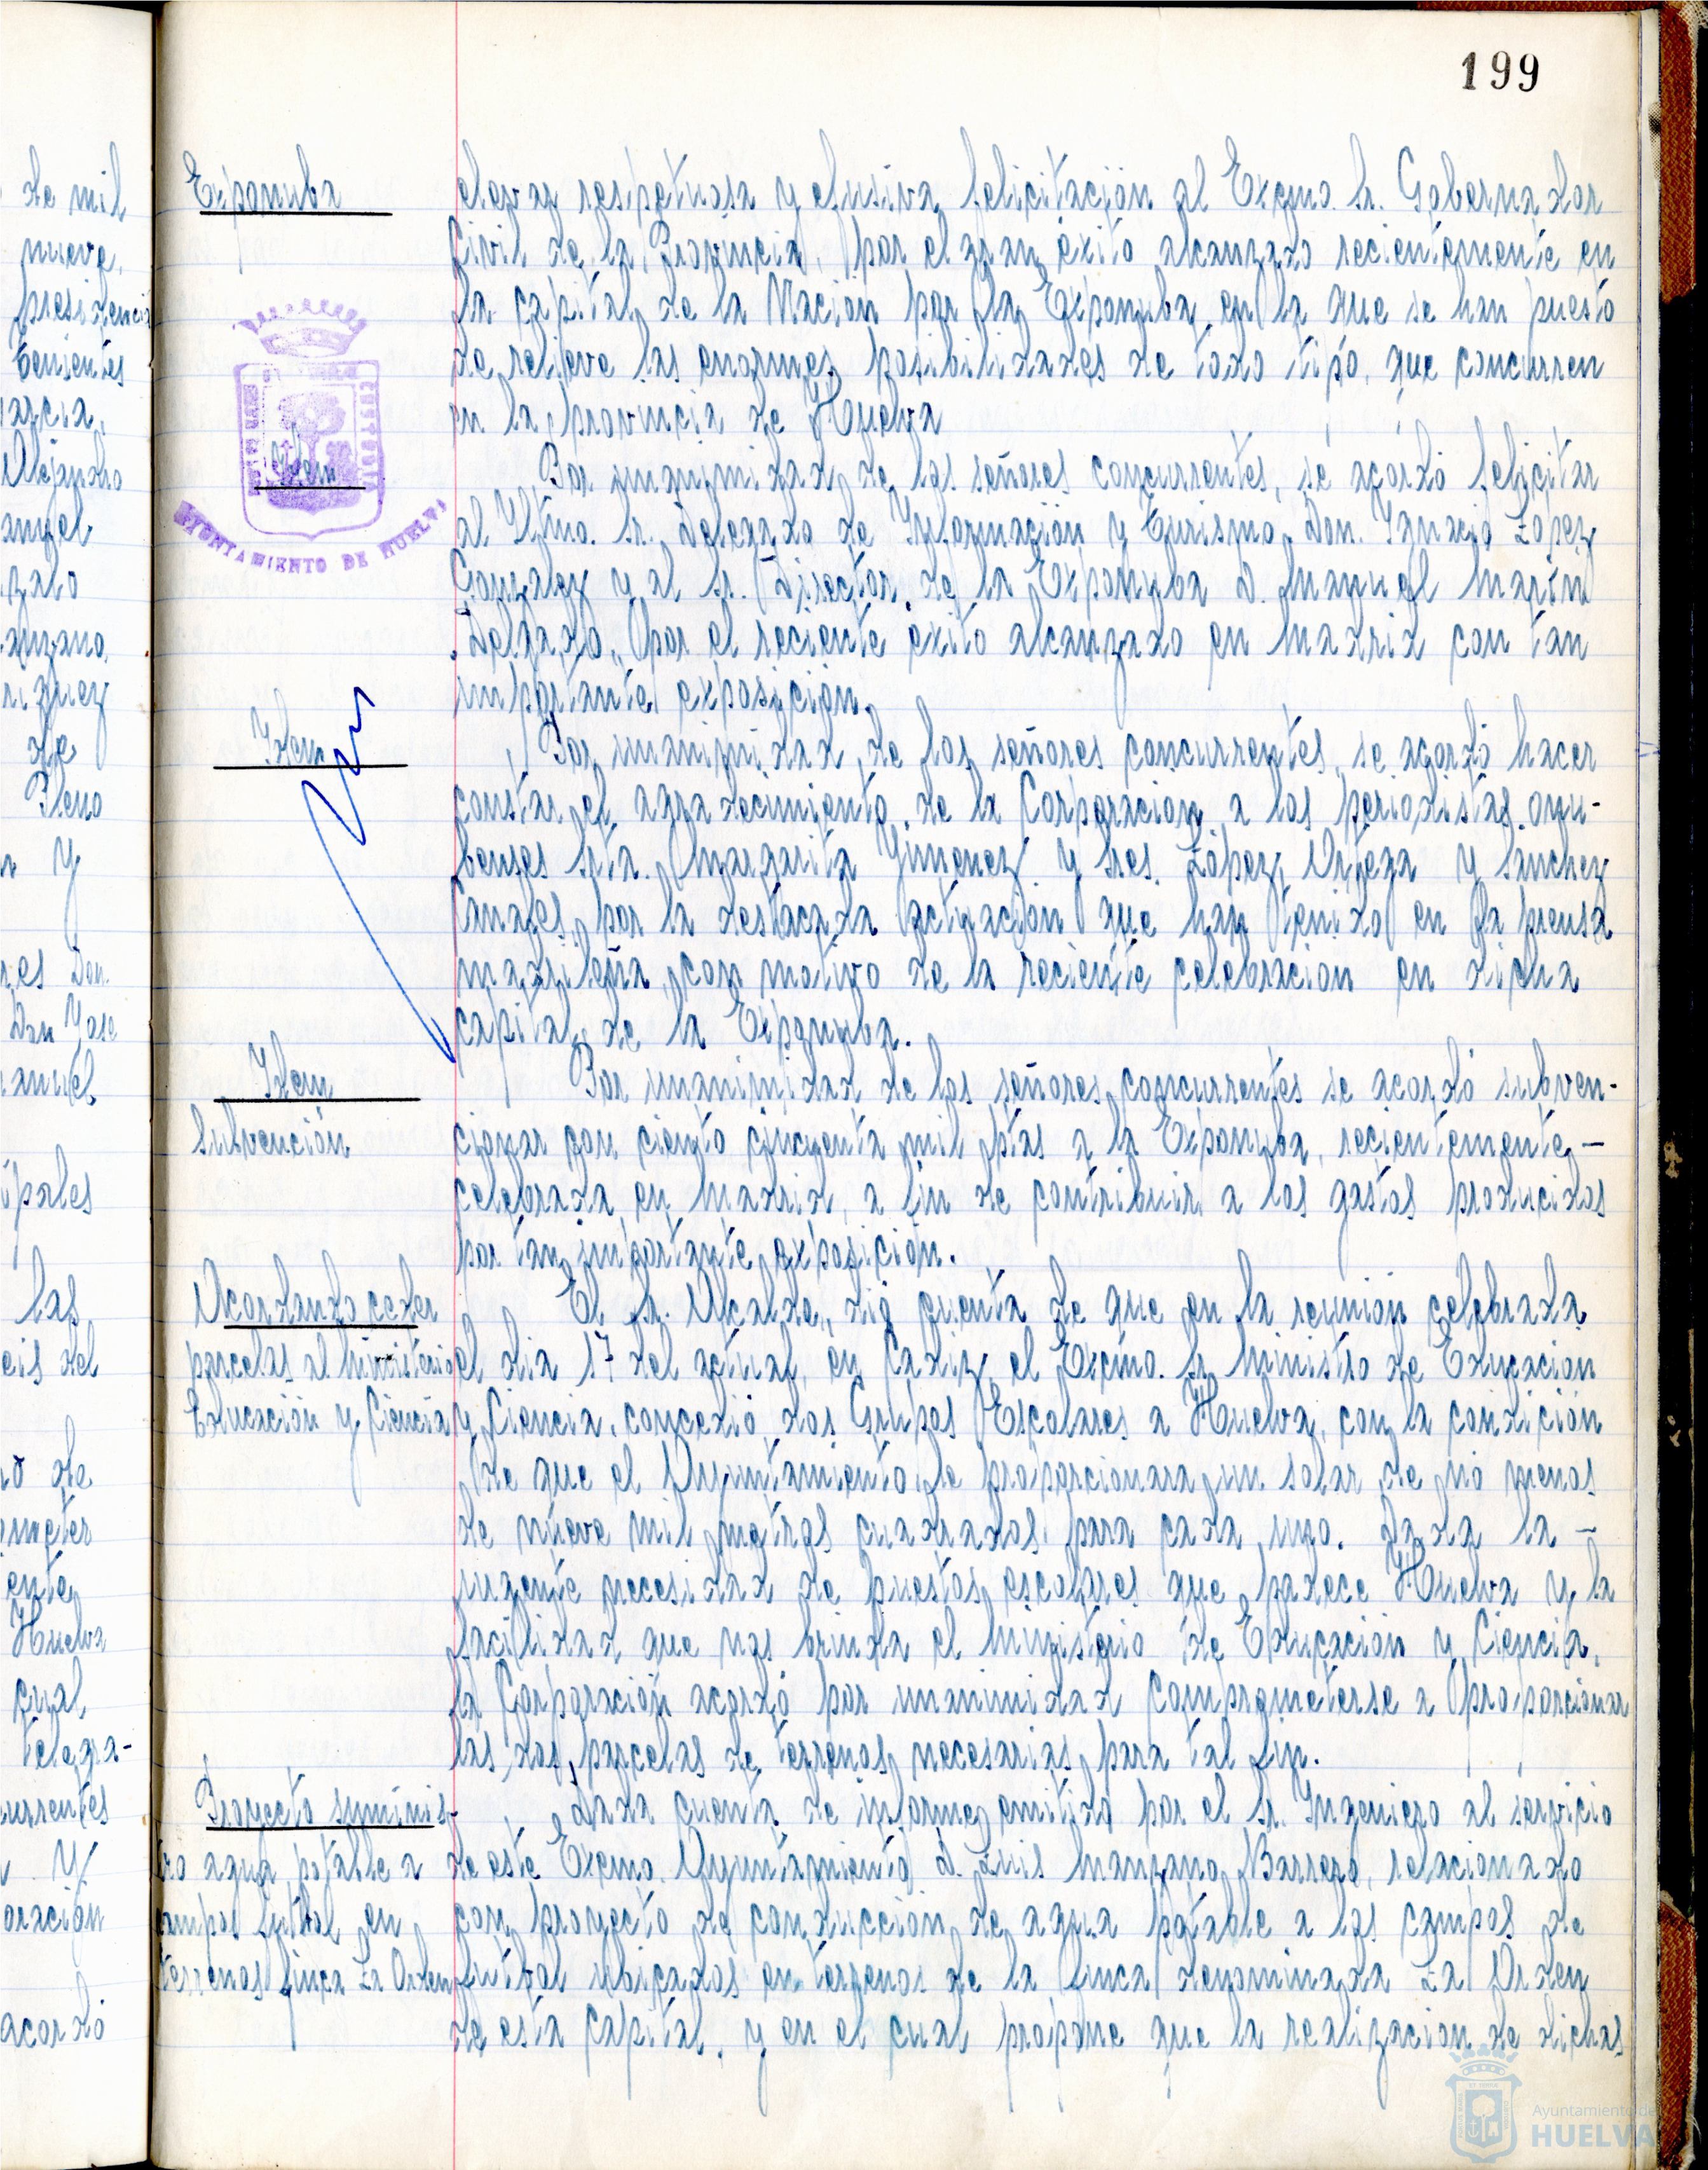 199
de mil
nueve.
presidencia
Tenientes
arcia,
Alejandro
anuel
nzalo
anzano,
riguez
de
Pleno
n y
res Don
Don Jose
anuel
ipales
las
eis del
io de
ometer
ente
Huelva
cual
telegra-
currentes
n y
oración
acordó
Exponuba
elevar respetuosa y efusiva felicitación al Excmo. Sr. Gobernador
Civil de la Provincia, por el gran éxito alcanzado recientemente en
la capital de la Nación por la Exponuba, en la que se han puesto
de relieve las enormes posibilidades de todo tipo, que concurren
en la provincia de Huelva
Idem
AYUNTAMIENTO DE HUELVA
Por unanimidad de los señores concurrentes, se acordó felicitar
al Iltmo. Sr. Delegado de Información y Turismo, Don. Ignacio López
Gonzalez y al Sr. Director de la Exponuba D. Manuel Marín
Delgado, por el reciente éxito alcanzado en Madrid con tan
importante exposición.
Idem
Por unanimidad de los señores concurrentes, se acordó hacer
constar el agradecimiento de la Corporación a los periodistas onu-
benses Srta. Margarita Jimenez y Sres. López Ortega y Sanchez
Canales, por la destacada actuación que han tenido en la prensa
madrileña, con motivo de la reciente celebración en dicha
capital de la Exponuba.
Idem
Subvención
Por unanimidad de los señores concurrentes se acordó subven-
cionar con ciento cincuenta mil ptas a la Exponuba, recientemente -
celebrada en Madrid, a fin de contribuir a los gastos producidos
por tan importante exposición.
Acordando ceder
parcelas al Ministerio
Educación y Ciencia
El Sr. Alcalde, dió cuenta de que en la reunión celebrada
el dia 17 del actual, en Cadiz, el Excmo. Sr Ministro de Educación
y Ciencia, concedió dos Grupos Escolares a Huelva, con la condición
de que el Ayuntamiento le proporcionara un solar de no menos
de nueve mil metros cuadrados para cada uno. Dada la -
urgente necesidad de puestos escolares que padece Huelva y la
facilidad que nos brinda el Ministerio de Educación y Ciencia,
la Corporación acordó por unanimidad comprometerse a proporcionar
las dos parcelas de terrenos necesarias para tal fin.
Proyecto suminis-
tro agua potable a
campos futbol en
terrenos finca La Orden
Dada cuenta de informe emitido por el Sr. Ingeniero al servicio
de este Excmo. Ayuntamiento D. Luis Manzano Barrero, relacionado
con proyecto de conducción de agua potable a los campos de
futbol ubicados en terrenos de la finca denominada La Orden
de esta Capital, y en el cual propone que la realización de dichas
Ayuntamiento de
HUELVA